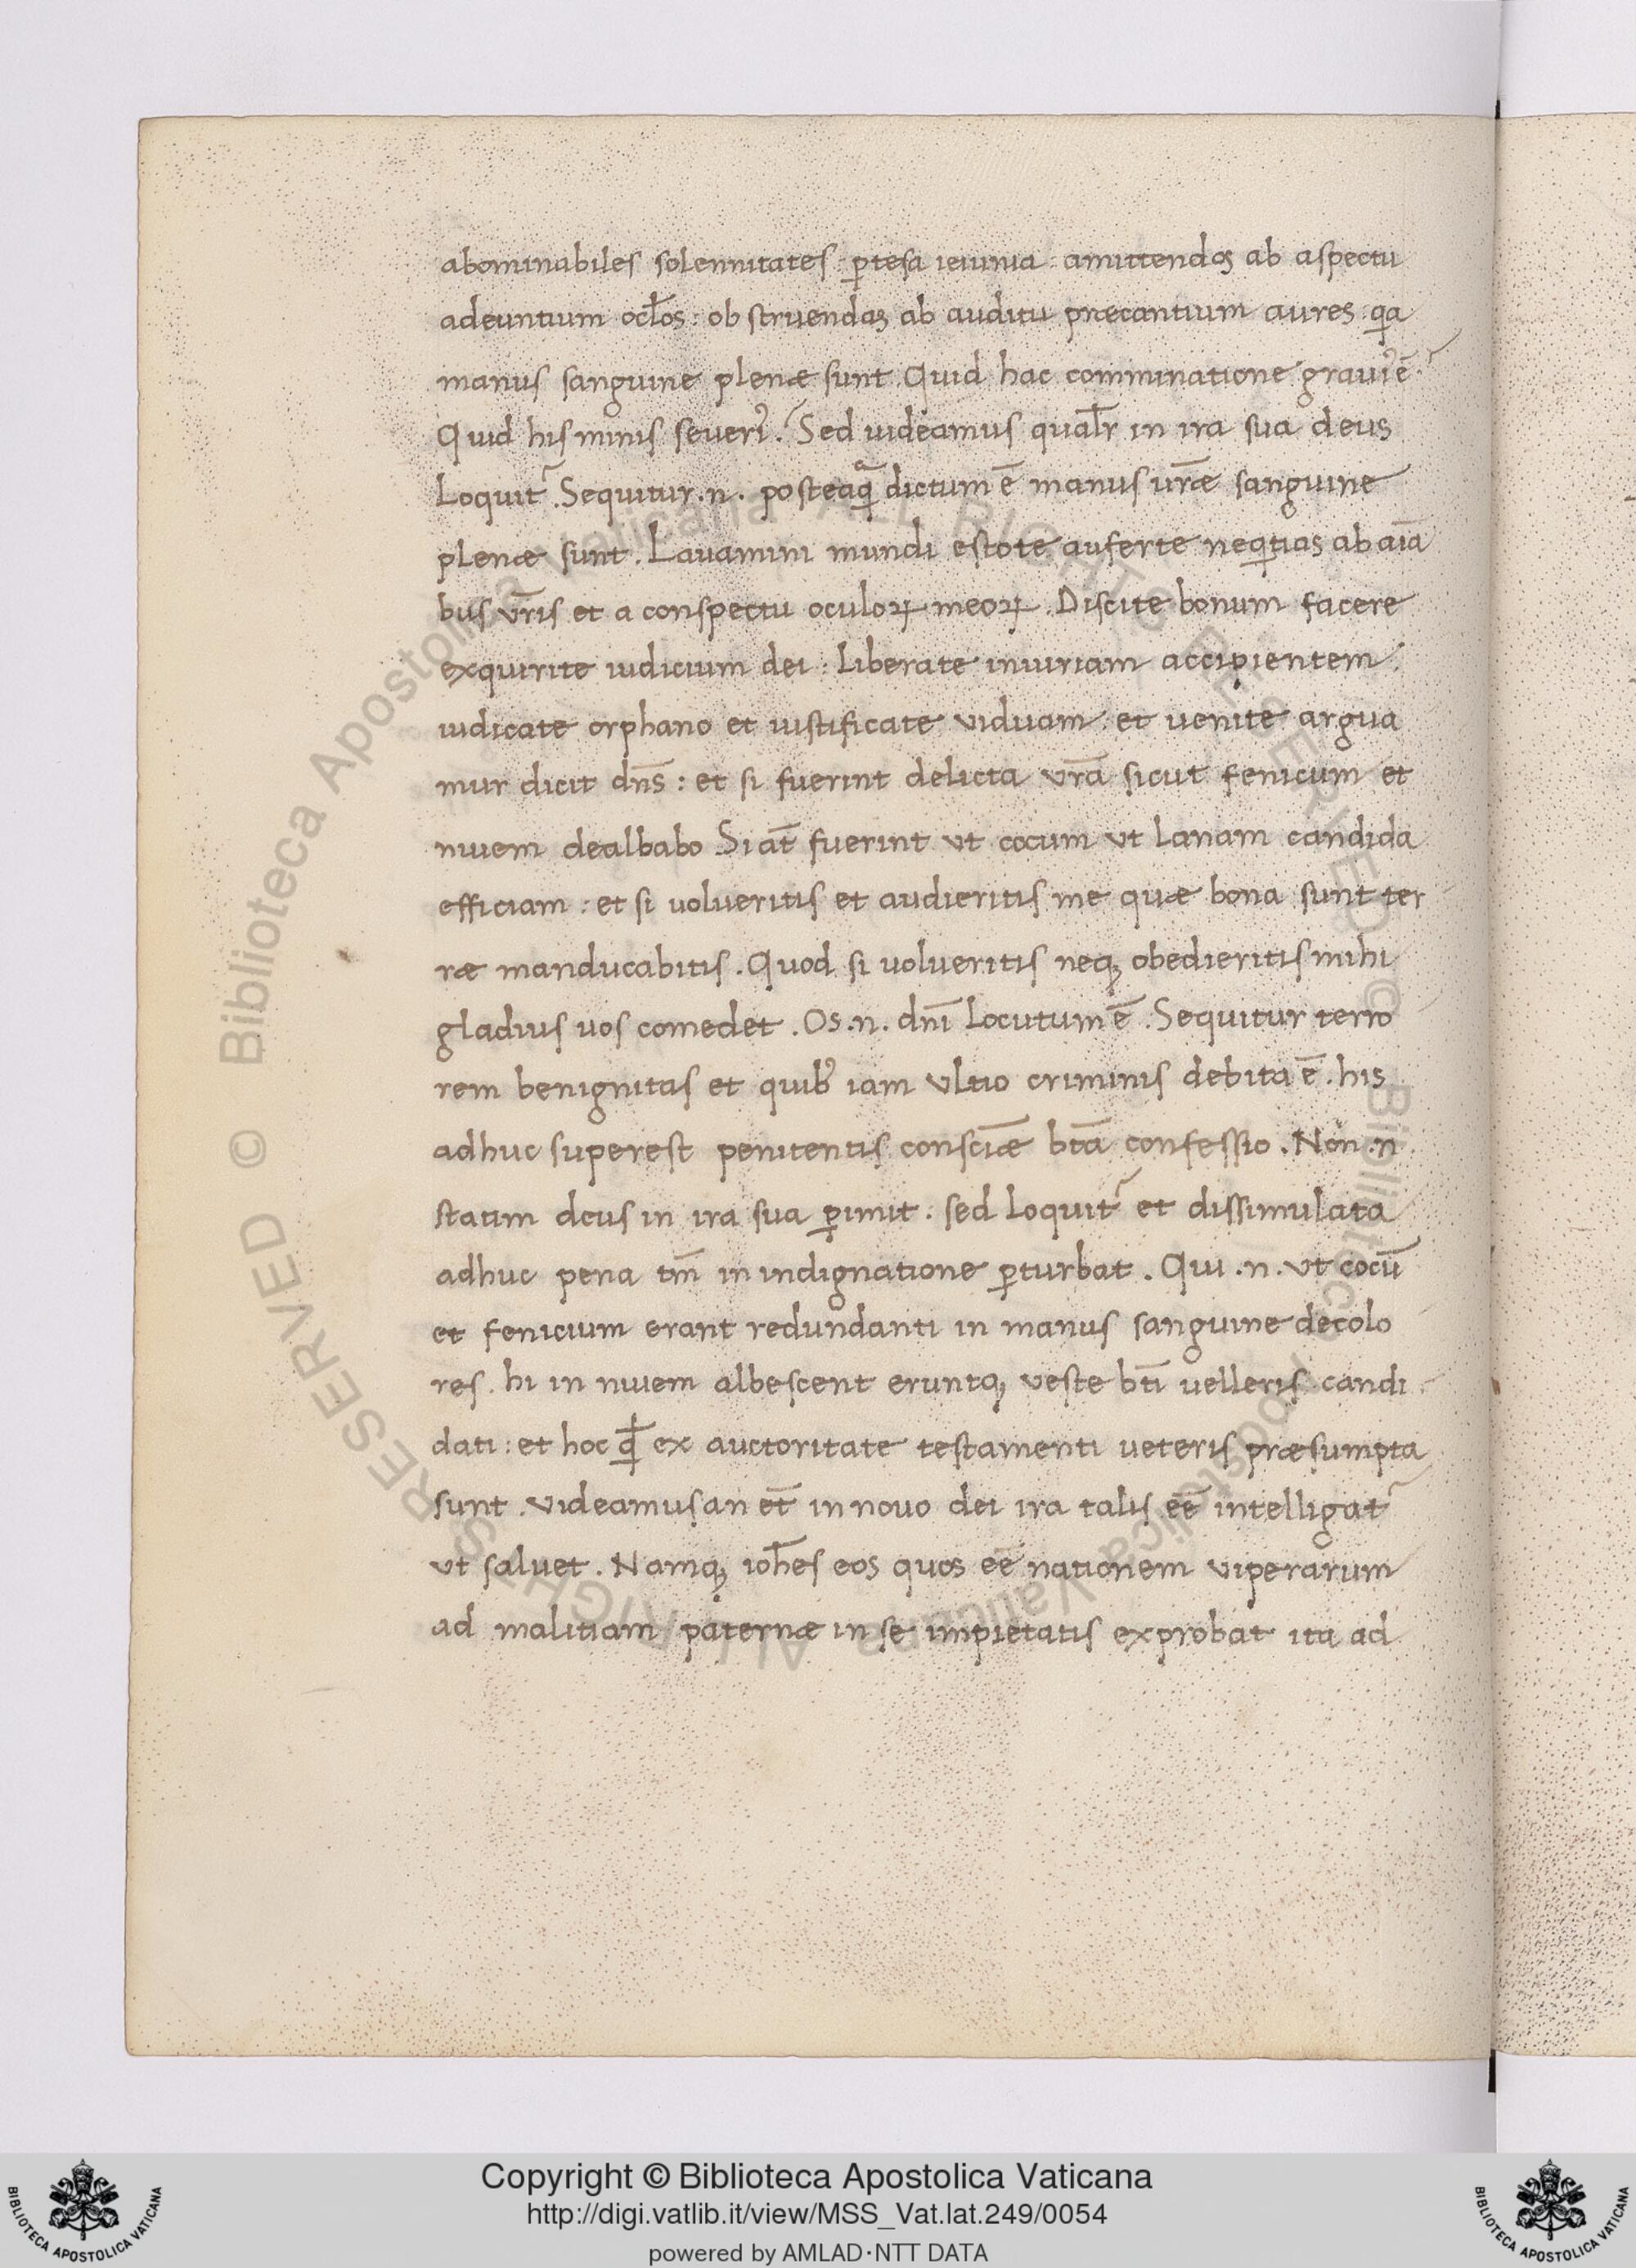 abominabiles solennitates : p̱tesa ieiunia : amittendos ab aspectu
adeuntium ocl̄os : obstruendas ab auditu præcantium aures : qa
manus sanguine plenæ sunt . Quid hac comminatione graui᾽ ē ?
Quid his minis seueri᾽ ? Sed uideamus qualr̄ in ira sua deus
Loquit᷑ . Sequitur .n. posteaq̄ᵃ dictum ē manus ur̄æ sanguine
plenæ sunt . Lauamini mundi estote auferte neq̱tias ab aīa
bus vr̄is et a conspectu oculoꝝ meoꝝ . Discite bonum facere
exquirite iudicium dei : liberate iniuriam accipientem :
iudicate orphano et iustificate viduam : et uenite argua
mur dicit dn̄s : et si fuerint delicta vr̄a sicut fenicum et
niuem dealbabo . Si at̄ fuerint vt cocum vt Lanam candida
efficiam : et si uolueritis et audieritis me quæ bona sunt ter
ræ manducabitis . Quod si uolueritis neqꝫ obedieritis mihi
gladius uos comedet . Os .n. dn̄i Locutum ē . Sequitur terro
rem benignitas et quib᾽ iam vltio criminis debita ē . his
adhuc superest penitentis consciǣ bt̄a confessio . Non .n
statim deus in ira sua p̱imit . sed loquit᷑ et dissimulata
adhuc pena tm̄ in indignatione p̱turbat . Qui .n. vt cocū
et fenicium erant redundanti in manus sanguine decolo
res . hi in niuem albescent eruntqꝫ veste bt̄i uelleris candi
dati : et hoc ꝗ̄ ex auctoritate testamenti ueteris præsumpta
sunt . videamus an et̄ in nouo dei ira talis eē intelligat᷑
vt saluet . Namqꝫ ioh̄es eos quos eē nationem viperarum
ad malitiam paternæ in se impietatis exprobat ita ad
© Biblioteca Apostolica Vaticana ALL RIGHTS RESERVED
© Biblioteca Apostolica Vaticana ALL RIGHTS RESERVED
Copyright © Biblioteca Apostolica Vaticana
http://digi.vatlib.it/view/MSS_Vat.lat.249/0054
powered by AMLAD·NTT DATA
BIBLIOTECA APOSTOLICA VATICANA
BIBLIOTECA APOSTOLICA VATICANA